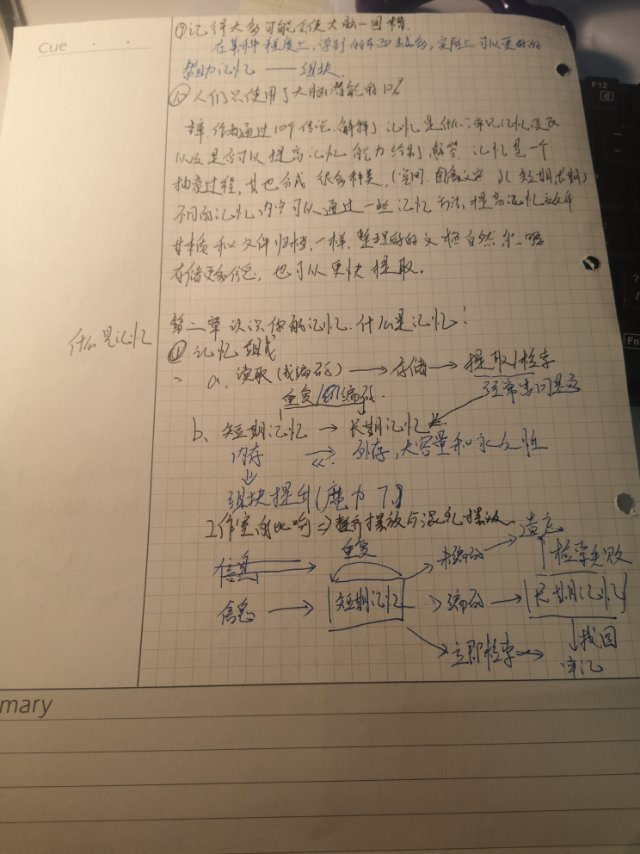 Cue
⑨记得太多可能会使大脑一团糟.
在某种程度上, 学到的东西越多, 实际上可以更好的
帮助记忆 —— 组块
F12
⑩人们只使用了大脑潜能的10%
作者通过10个传说. 解释了记忆是什么
以及是否可以提高记忆能力给到解答. 记忆是一个
抽象过程, 其也分成很多种类, (空间. 图像 短期 长期)
不同的记忆内容可以通过一些记忆方法提高记忆效率
其本质和文件归档一样, 整理好的文档自然
存储更多信息, 也可以更快提取.
第二章 认识你的记忆. 什么是记忆!
什么是记忆
①记忆组成
a. 读取(或编码) → 存储 → 提取/检索
Fn
重复/ 编码.
b、短期记忆 → 长期记忆
内存 外存, 大容量和永久性
组块提升(魔力7.)
工作室的比喻 => 整齐摆放与混乱摆放.
遗忘
重复
信息
未编码
检索失败
信息 → 短期记忆 → 编码 → 长期记忆
立即检索
找回
mary